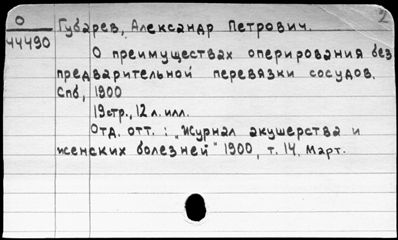 О
44490
Губарев, Александр Петрович.
2
О преимуществах оперирования без
предварительной перевязки сосудов.
Спб, 1900
19стр., 12 л. илл.
Отд. отт. : „Журнал акушерства и
женских болезней" 1900, т. 14. Март.